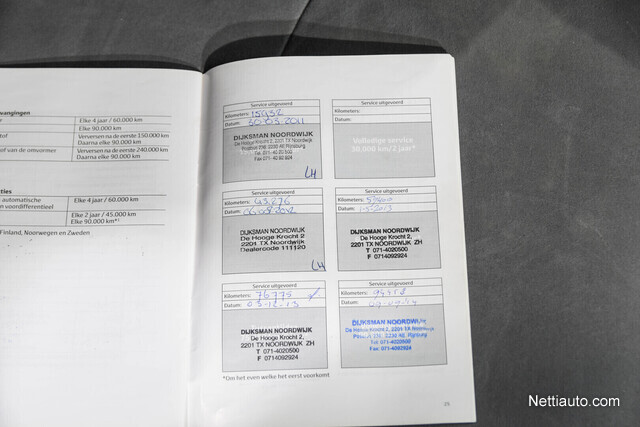 vangingen
Elke 4 jaar / 60.000 km
Elke 90.000 km
Verversen na de eerste 150.000 km
Daarna elke 90.000 km
of van de omvormer
Verversen na de eerste 240.000 km
Daarna elke 90.000 km
ties
automatische
n voordifferentieel
Elke 4 jaar / 60.000 km
Elke 2 jaar / 45.000 km
Elke 90.000 km*¹
Finland, Noorwegen en Zweden
Service uitgevoerd
Kilometers:
Datum: 30.03.2011
DIJKSMAN NOORDWIJK
De Hooge Krocht 2, 2201 TX Noordwijk
Postbus 236, 2230 AE Rijnsburg
Tel. 071-40 20 500
Fax 071-40 92 924
LH
Service uitgevoerd
Kilometers:
Datum:
Volledige service
30.000 km/2 jaar*
Service uitgevoerd
Kilometers: 43.276
Datum: 06.08.2012
DIJKSMAN NOORDWIJK
De Hooge Krocht 2
2201 TX Noordwijk
Dealercode 111120
LH
Service uitgevoerd
Kilometers:
Datum: 1-5-2013
DIJKSMAN NOORDWIJK
De Hooge Krocht 2,
2201 TX NOORDWIJK ZH
T 071-4020500
F 0714092924
Service uitgevoerd
Kilometers: 76775
Datum: 03-12-13
DIJKSMAN NOORDWIJK
De Hooge Krocht 2,
2201 TX NOORDWIJK ZH
T 071-4020500
F 0714092924
Service uitgevoerd
Kilometers:
Datum:
DIJKSMAN NOORDWIJK
De Hooge Krocht 2, 2201 TX Noordwijk
Postbus 236, 2230 AE Rijnsburg
Tel. 071-4020500
Fax: 071-4092924
*Om het even welke het eerst voorkomt.
Nettiauto.com